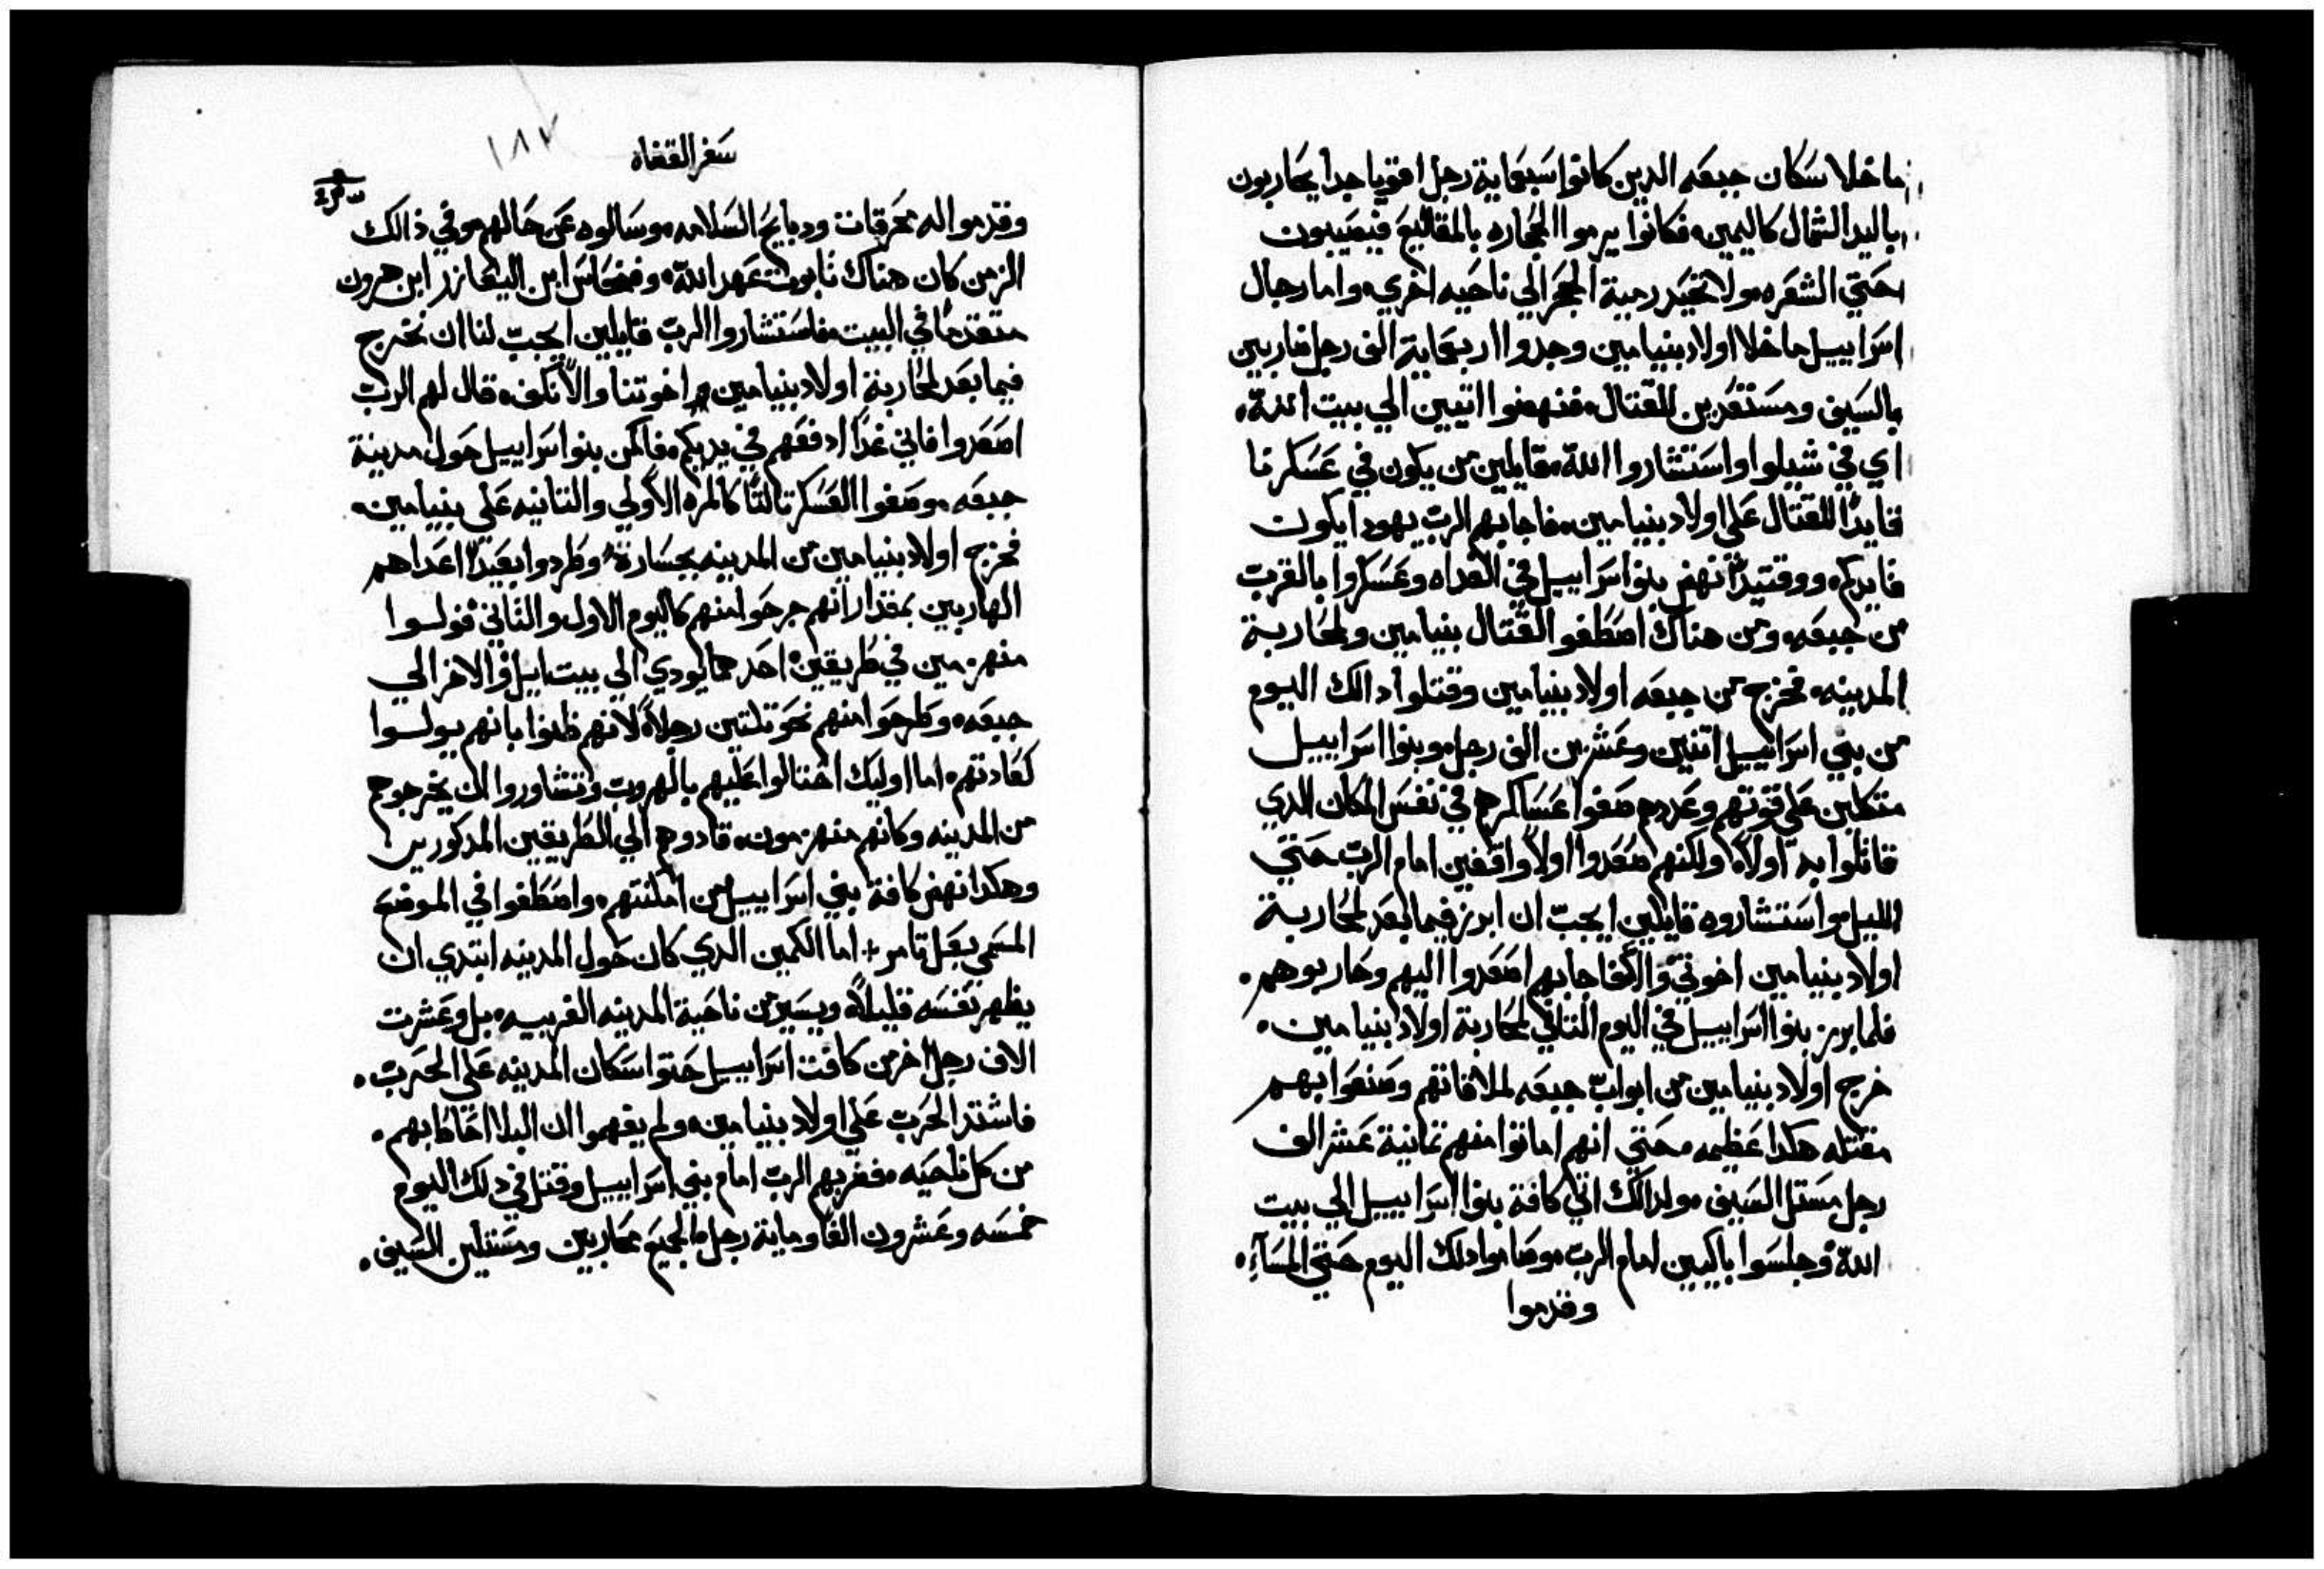 ما خلا سكان جبعه الدين كانوا سبعماية رجل اقويا جدا يحاربون
باليد الشمال كاليمين فكانوا يرموا الحجاره بالمقاليع فيصيبون
حتي الشعره ولا تحيد رمية الحجر الي ناحيه اخري واما رجال
اسراييل ما خلا اولاد بنيامين وجدوا اربعماية الف رجل ضاربين
بالسيف ومستعدين للقتال فنهضوا اتيين الي بيت الله
اي في شيلوا واستشاروا الله قايلين من يكون في عسكرنا
قايدا للقتال علي اولاد بنيامين فاجابهم الرب يهودا يكون
قايدكم ووقتيد نهض بنو اسراييل في الغداه وعسكروا بالقرب
من جبعه ومن هناك اصطفوا لقتال بنيامين ولمحاربة
المدينه فخرج من جبعه اولاد بنيامين وقتلوا دالك اليوم
من بني اسراييل اتنين وعشرين الف رجل وبنوا اسراييل
متكلين علي قوتهم وعددهم صفوا عساكرهم في نفس المكان الدي
قاتلوا به اولاً ولكنهم صعدوا اولاً واقفين امام الرب حتي
الليل واستشاروه قايلين ايجب ان ابرز فيما بعد لمحاربة
اولاد بنيامين اخوتي والا فاجابهم اصعدوا اليهم وحاربوهم
فلما برز بنوا اسراييل في اليوم التاني لمحاربة اولاد بنيامين
خرج اولاد بنيامين من ابواب جبعه لملاقاتهم وصنعوا بهم
مقتله هكدا عظيمه حتي انهم اماتوا منهم تمانية عشر الف
رجل مستل السيف ولدالك اتي كافة بنوا اسراييل الي بيت
الله وجلسوا باكيين امام الرب وصاموا دلك اليوم حتي المسآء
وقدموا
سفر القضاه
١٨٧
وقدموا له محرقات ودبايح السلامه وسالوه عن حالهم وفي ذالك
الزمن كان هناك تابوت عهد الله وفنحاس ابن اليعازر ابن هرون
متقدمًا في البيت فاستشاروا الرب قايلين ايجب لنا ان نخرج
فيما بعد لمحاربة اولاد بنيامين اخوتنا والا نكف قال لهم الرب
اصعدوا فاني غدًا ادفعهم في يديكم فاكمن بنو اسراييل حول مدينة
جبعه وصفوا العسكر تالتًا كالمره الاولي والتانيه علي بنيامين
فخرج اولاد بنيامين من المدينه بجسارة وطردوا بعيدًا اعداهم
الهاربين بمقدار انهم جرحوا منهم كاليوم الاول والتاني فولوا
منهزمين في طريقين احدهما يودي الي بيت ايل والاخر الي
جبعه وطرحوا منهم نحو تلتين رجلاً لانهم ظنوا بانهم يولوا
كعادتهم اما اوليك احتالوا عليهم بالهروب وتشاوروا ان يخرجوهم
من المدينه وكانهم منهزمون قادوهم الي الطريقين المدكورين
وهكدا نهض كافة بني اسراييل من امكنتهم واصطفوا في الموضع
المسمي بعل تامر + اما الكمين الدي كان حول المدينه ابتدي ان
يظهر نفسه قليلاً ويسير من ناحية المدينه الغربيه بل وعشرت
الاف رجل اخر من كافت اسراييل حتوا سكان المدينه علي الحرب
فاشتد الحرب علي اولاد بنيامين ولم يفهموا ان البلا احاط بهم
من كل ناحيه فضربهم الرب امام بني اسراييل وقتل في دلك اليوم
خمسه وعشرون الفًا وماية رجل الجميع محاربين ومستلين السيف